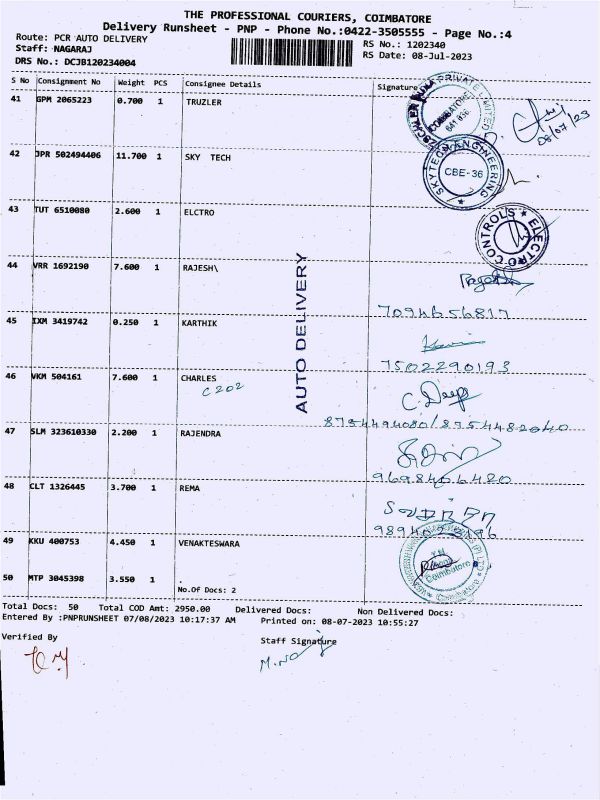 THE PROFESSIONAL COURIERS, COIMBATORE
Delivery Runsheet - PNP - Phone No.:0422-3505555 - Page No.:4
Route: PCR AUTO DELIVERY
RS No.: 1202340
Staff: NAGARAJ
RS Date: 08-Jul-2023
DRS No.: DCJB120234004
S No Consignment No Weight PCS Consignee Details Signature
41 GPM 2065223 0.700 1 TRUZLER
COIMBATORE 641 036
PRIVATE LIMITED
08/07/23
42 JPR 502494406 11.700 1 SKY TECH
SKYTECH ENGINEERING
CBE-36
43 TUT 6510080 2.600 1 ELCTRO
ELECTRO CONTROLS
44 VRR 1692190 7.600 1 RAJESH\
7094656817
45 IXM 3419742 0.250 1 KARTHIK
7502290193
46 VKM 504161 7.600 1 CHARLES
C202
C. Deep
47 SLM 323610330 2.200 1 RAJENDRA
9698406480
48 CLT 1326445 3.700 1 REMA
49 KKU 400753 4.450 1 VENAKTESWARA
Coimbatore
50 MTP 3045398 3.550 1
No.Of Docs: 2
AUTO DELIVERY
Total Docs: 50 Total COD Amt: 2950.00 Delivered Docs: Non Delivered Docs:
Entered By :PNPRUNSHEET 07/08/2023 10:17:37 AM Printed on: 08-07-2023 10:55:27
Verified By
Staff Signature